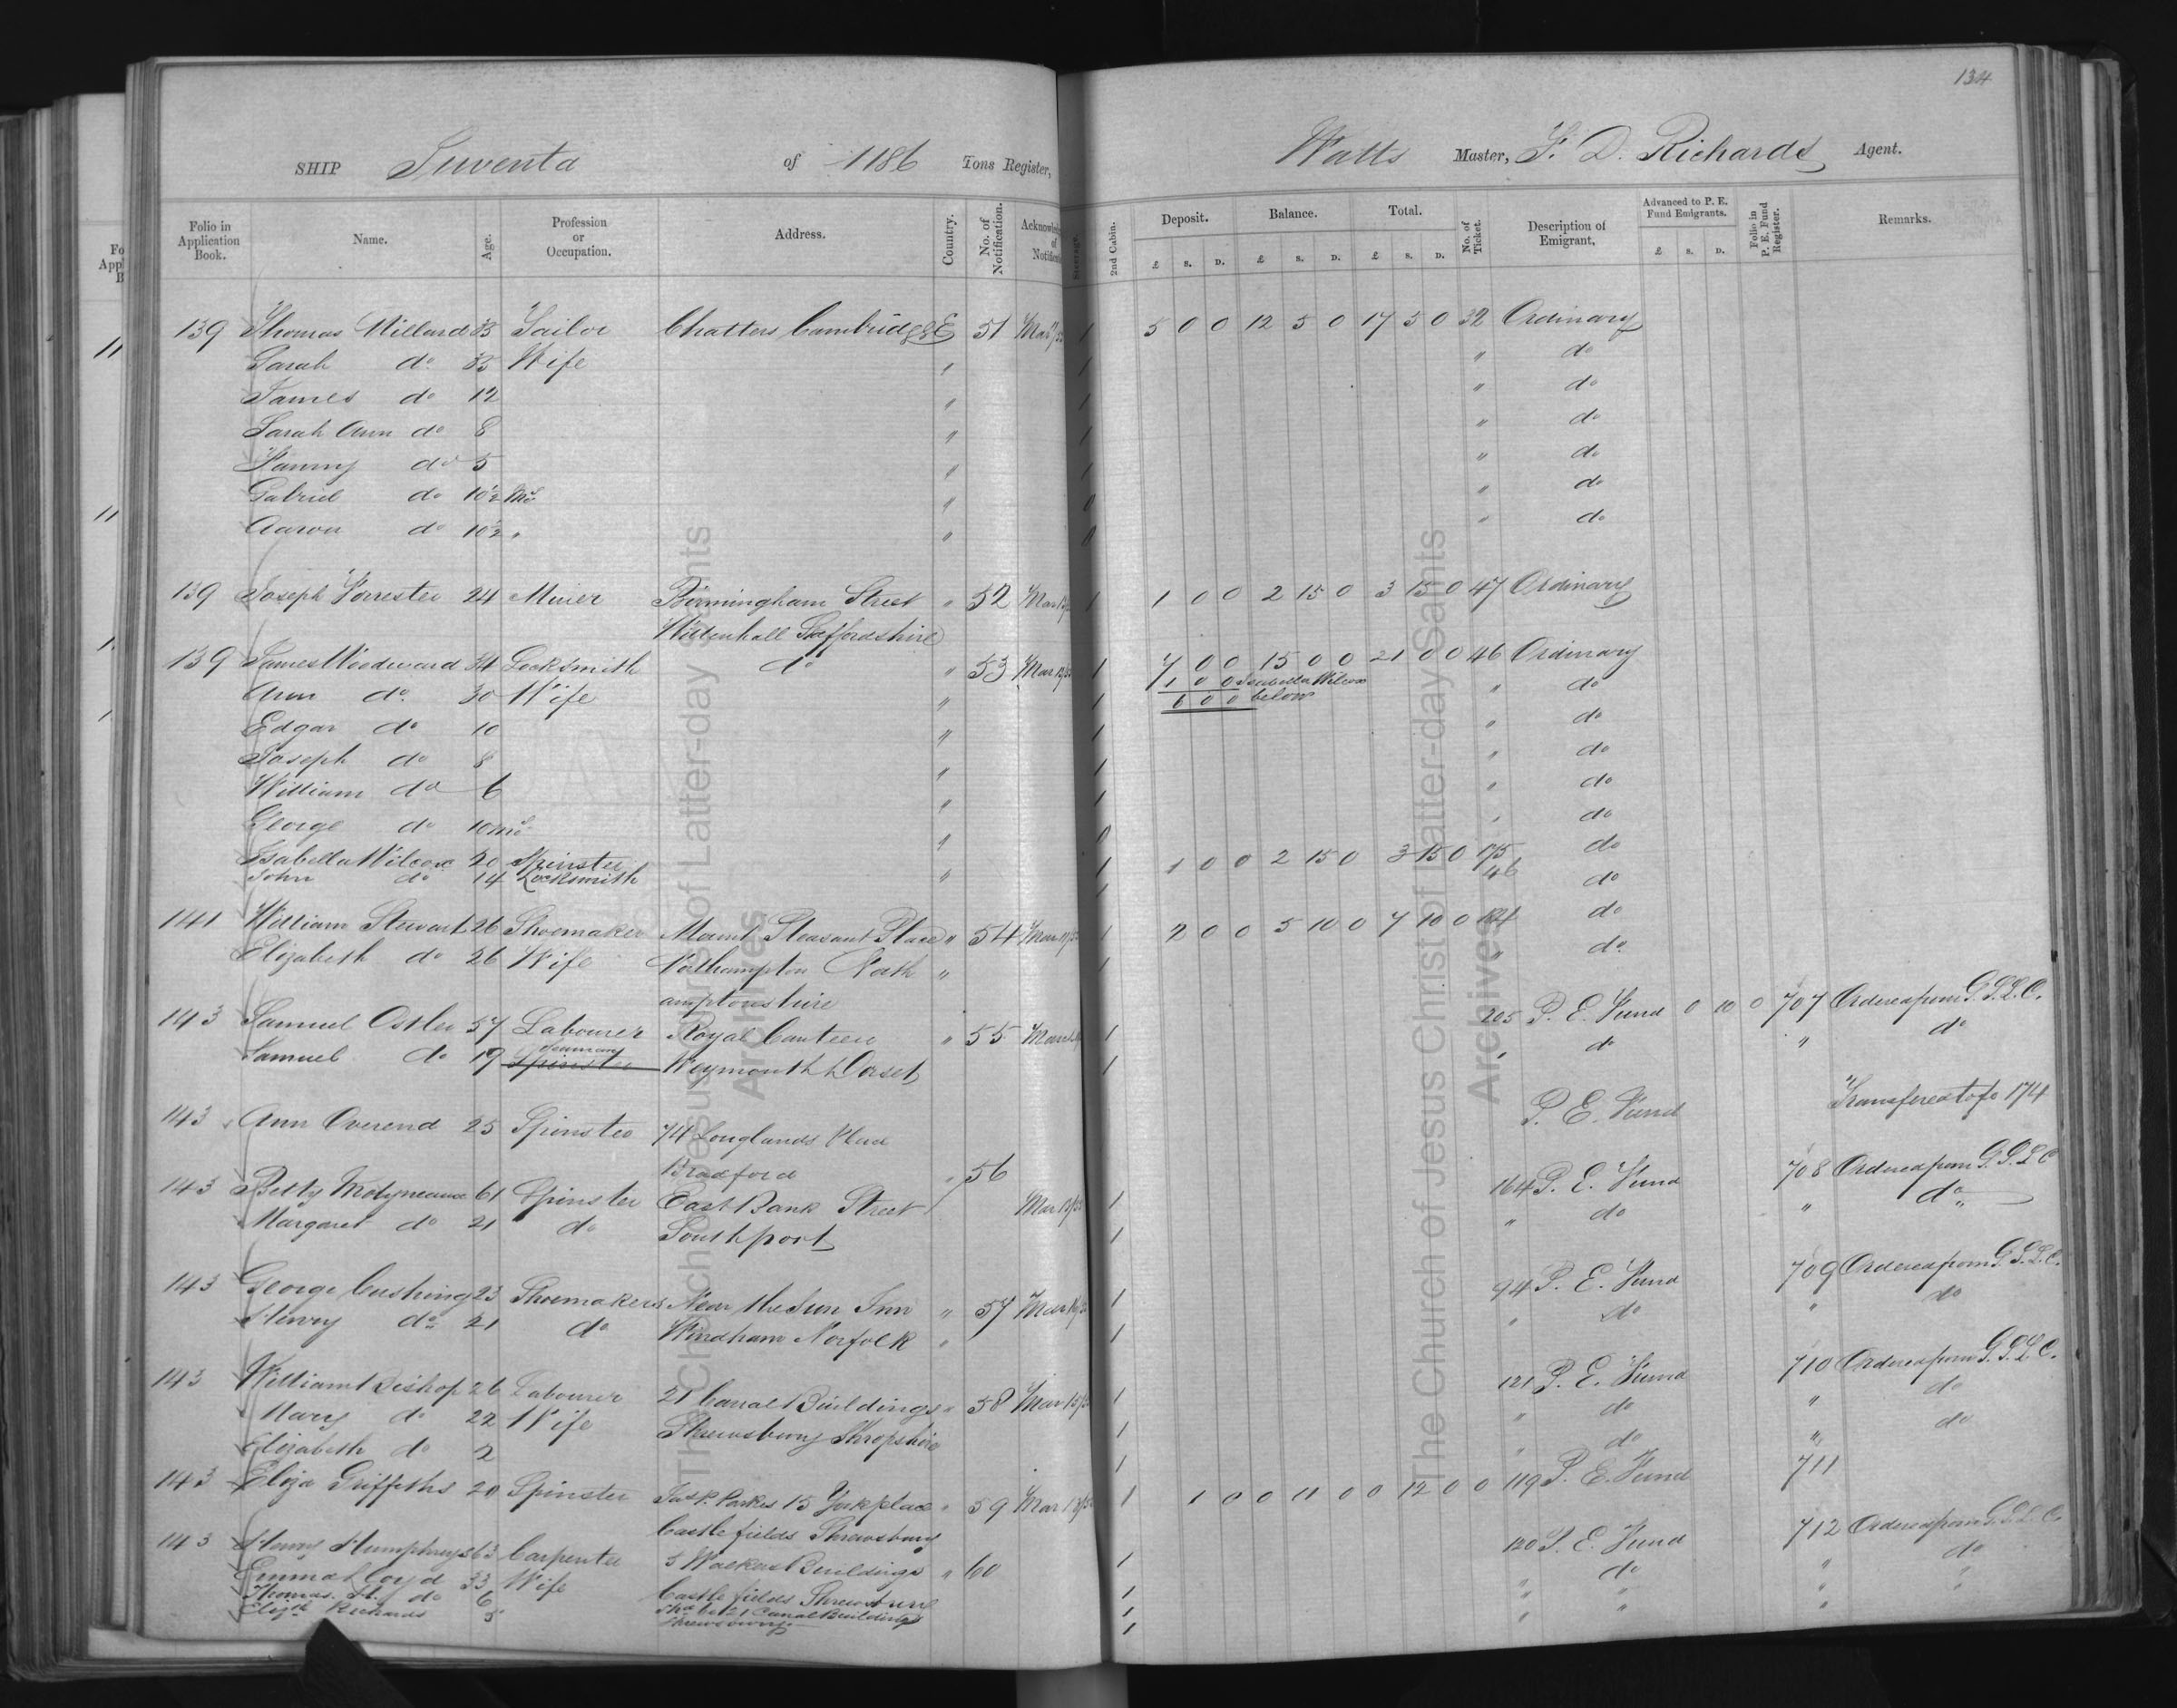 134
SHIP Juventa of 1186 Tons Register, Watts Master, F. D. Richards Agent.
Folio in Application Book. Name. Age. Profession or Occupation. Address. Country. No. of Notification. Steerage. 2nd Cabin. Deposit. Balance. Total. No. of Ticket. Description of Emigrant. Advanced to P. E. Fund Emigrants. Folio in P. E. Fund Register. Remarks.
£ S. D. £ S. D. £ S. D. £ S. D.
139 Thomas Millard Tailor Chatters Cambridge E 51 1 5 0 0 12 5 0 17 5 0 32 Ordinary
Sarah do 35 Wife " 1 " do
James do 12 " 1 " do
Sarah Ann do 8 " 1 " do
Fanny do 5 " 1 " do
Gabriel do 10½ Mo " 0 " do
Aaron do 10½ " " 0 " do
139 Joseph Forrester 24 Miner Birmingham Street " 52 1 1 0 0 2 15 0 3 15 0 47 Ordinary
Willenhall Staffordshire
139 James Woodward 34 Locksmith do " 53 1 7 0 0 15 0 0 21 0 0 46 Ordinary
1 0 0 Isabella Wilcox
Ann do 30 Wife " 1 6 0 0 below " do
Edgar do 10 " 1 " do
Joseph do 8 " 1 " do
William do 6 " 1 " do
George do 10 mo " 0 " do
Isabella Wilcox 20 Spinster " 1 1 0 0 2 15 0 3 15 0 175 do
John do 14 Locksmith 1 46 do
141 William Stewart 26 Shoemaker Mount Pleasant Place " 54 1 2 0 0 5 10 0 7 10 0 do
Elizabeth do 26 Wife Northampton North " 1 " do
amptonshire
143 Samuel Ostler 57 Labourer Royal Canteen " 55 1 205 P. E. Fund 0 10 0 707 Ordered from G.S.L.C.
Seaman
Samuel do 19 Spinster Weymouth Dorset 1 " do " do
143 Ann Overend 25 Spinster 74 Longlands P. E. Fund Transfered to fo 174
Bradford " 56
143 Betty Molyneaux 61 Spinster East Bank Street 1 164 P. E. Fund 708 Ordered from G.S.L.C
Margaret do 21 do Southport 1 " do " do
143 George Cushing 23 Shoemakers Near the Sun Inn " 57 1 94 P. E. Fund 709 Ordered from G.S.L.C.
Henry do 21 do Windham Norfolk " 1 " do " do
143 William Bishop 26 Labourer 21 Canal Buildings " 58 1 121 P. E. Fund 710 Ordered from G.S.L.C.
Mary do 22 Wife Shrewsbury Shropshire 1 " do " do
Elizabeth do 2 1 " do " do
143 Eliza Griffiths 20 Spinster Parkes 15 York place " 59 1 1 0 0 11 0 0 12 0 0 119 P. E. Fund 711
Castle fields Shrewsbury
143 Henry Humphrys 63 Carpenter 5 Walkers Buildings " 60 1 120 P. E. Fund 712 Ordered from G.S.L.C.
Emma Lloyd 33 Wife Castle fields Shrewsbury 1 " do " do
Thomas H. do 6 21 Canal Buildings 1 " " " "
Elizth Richards Shrewsbury 1 " " "
The Church of Jesus Christ of Latter-day Saints
Archives
The Church of Jesus Christ of Latter-day Saints
Archives